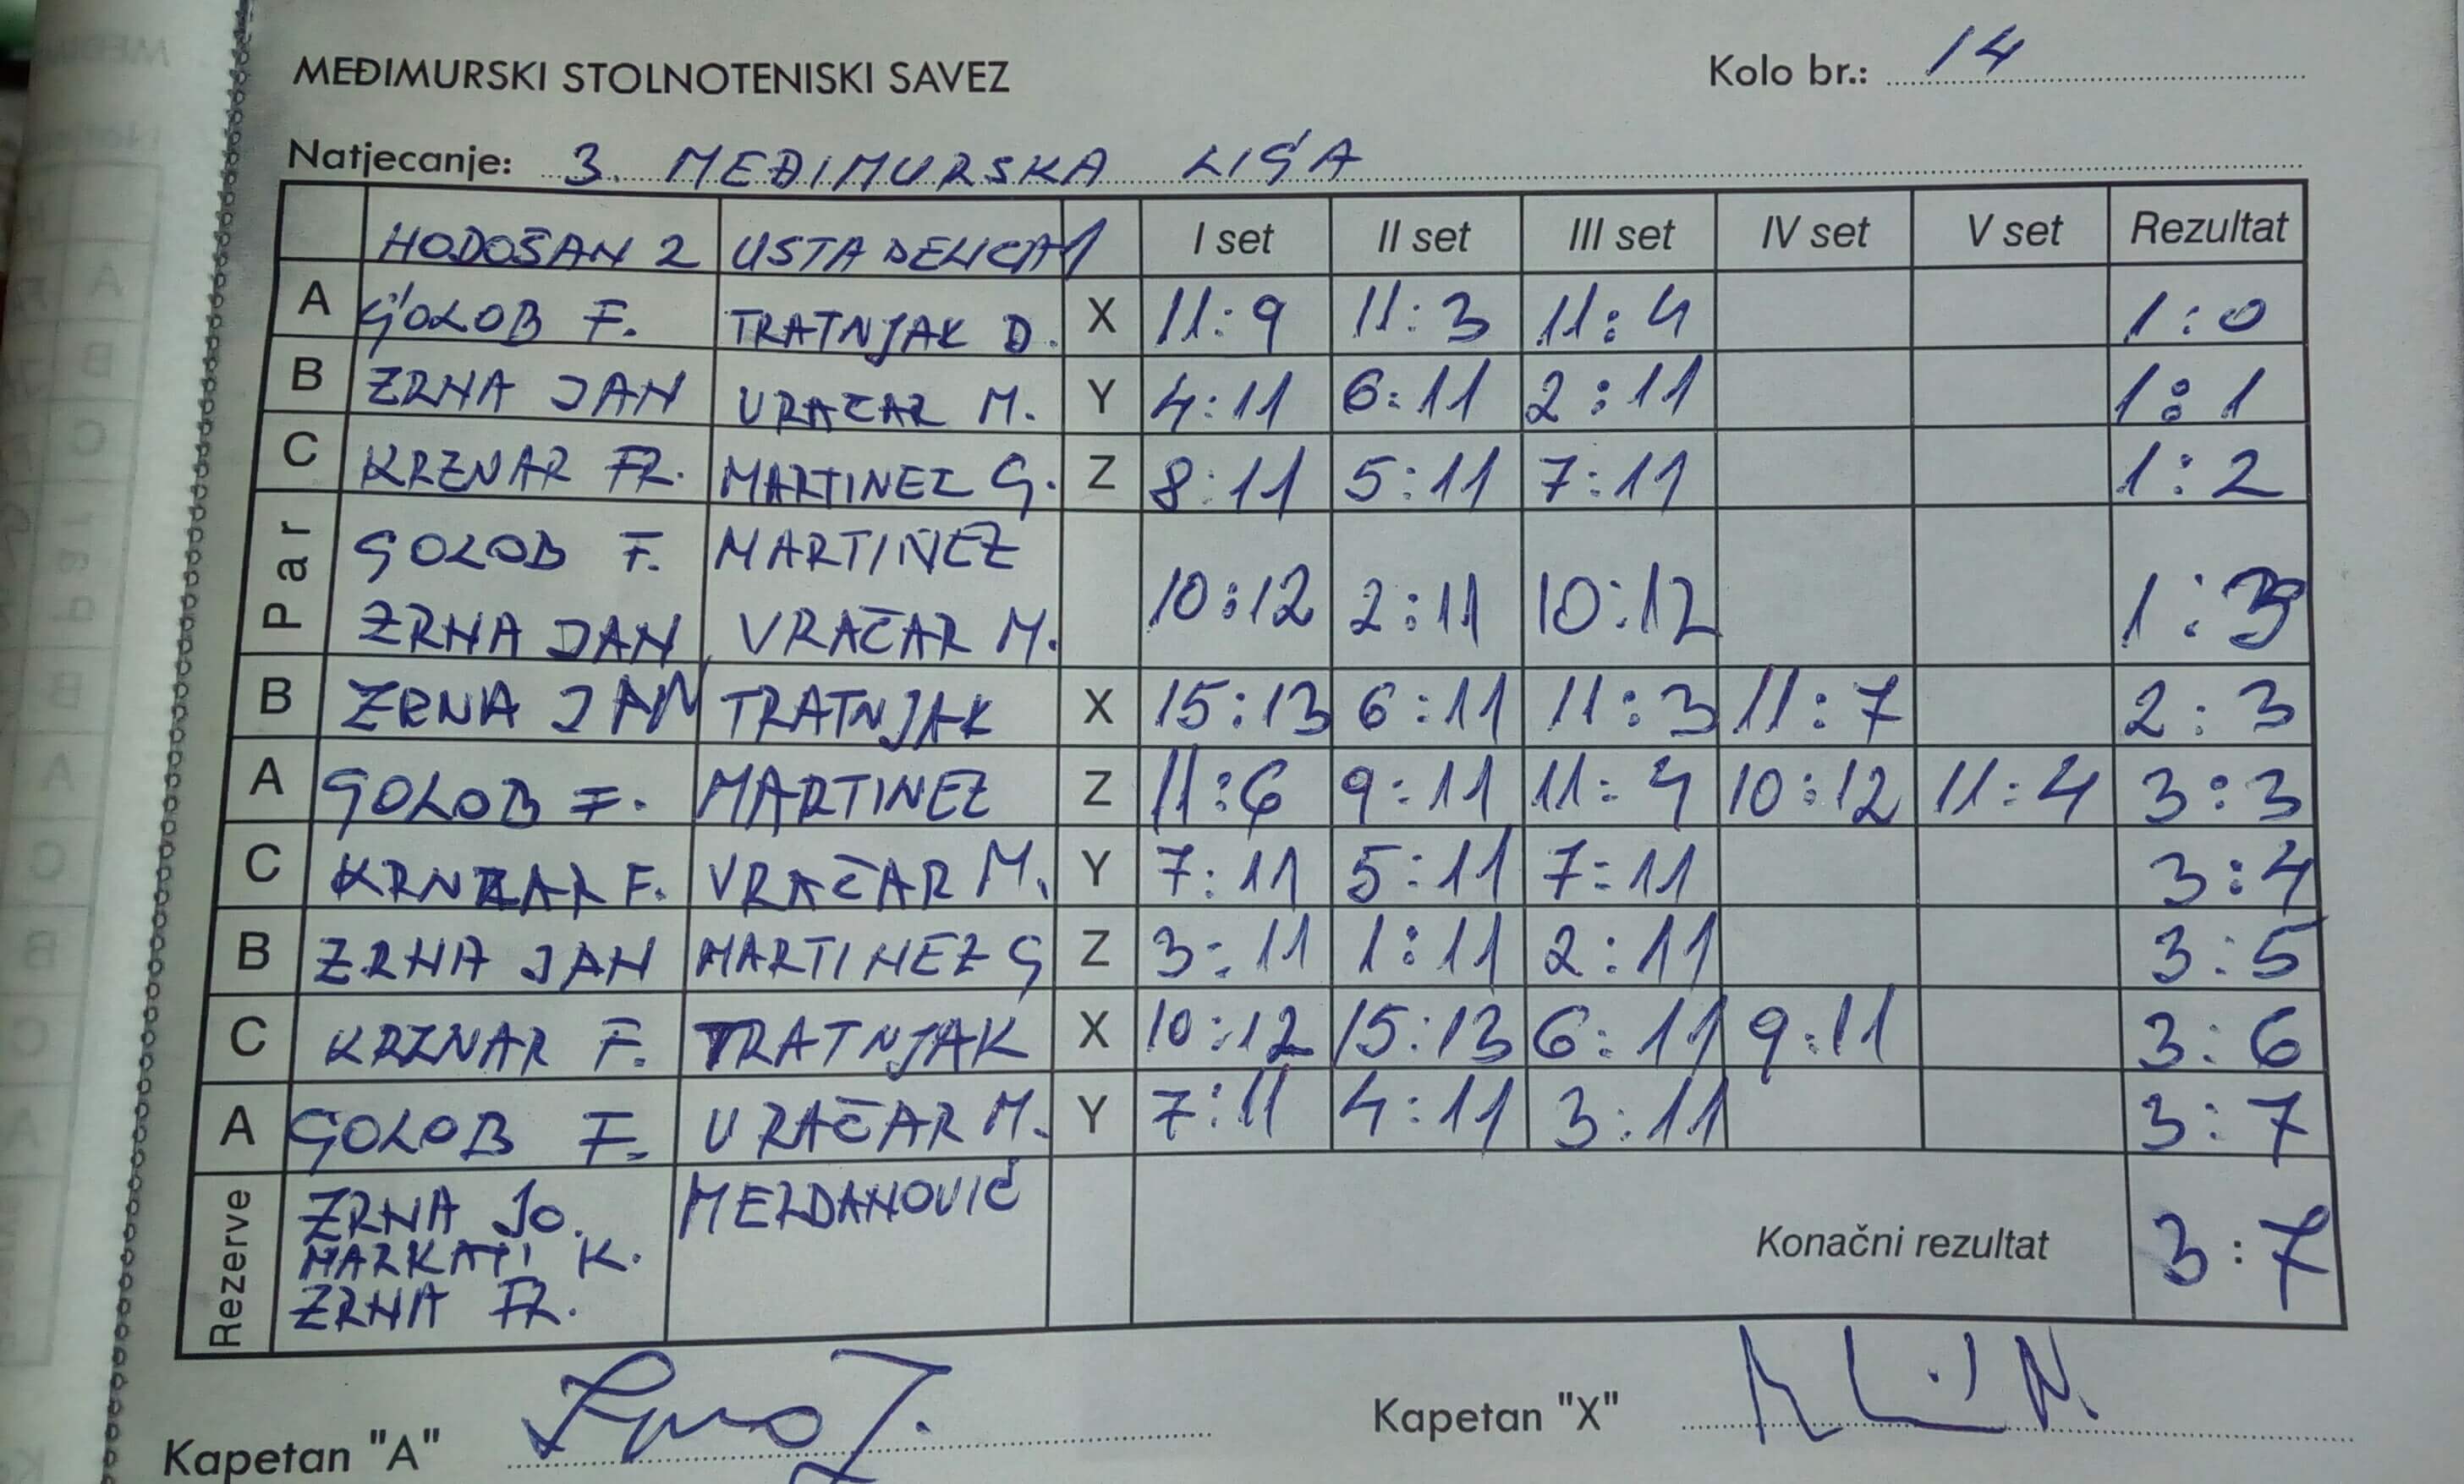 MEĐIMURSKI STOLNOTENISKI SAVEZ Kolo br.: 14
Natjecanje: 3. MEĐIMURSKA LIGA
HODOŠAN 2 USTA DELICA 1 I set II set III set IV set V set Rezultat
A GOLOB F. TRATNJAK D. X 11:9 11:3 11:4 1:0
B ZRNA JAN VRAČAR M. Y 4:11 6:11 2:11 1:1
C KRZNAR FR. MARTINEZ G. Z 8:11 5:11 7:11 1:2
Par GOLOB F. MARTINEZ
ZRNA JAN VRAČAR M. 10:12 2:11 10:12 1:3
B ZRNA JAN TRATNJAK X 15:13 6:11 11:3 11:7 2:3
A GOLOB F. MARTINEZ Z 11:6 9:11 11:4 10:12 11:4 3:3
C KRNZAR F. VRAČAR M. Y 7:11 5:11 7:11 3:4
B ZRNA JAN MARTINEZ G Z 3:11 1:11 2:11 3:5
C KRZNAR F. TRATNJAK X 10:12 15:13 6:11 9:11 3:6
A GOLOB F. VRAČAR M. Y 7:11 4:11 3:11 3:7
Rezerve ZRNA Jo. MEZDANOVIĆ
MARKATI K. Konačni rezultat 3:7
ZRNA FR.
Kapetan "A" Kapetan "X"